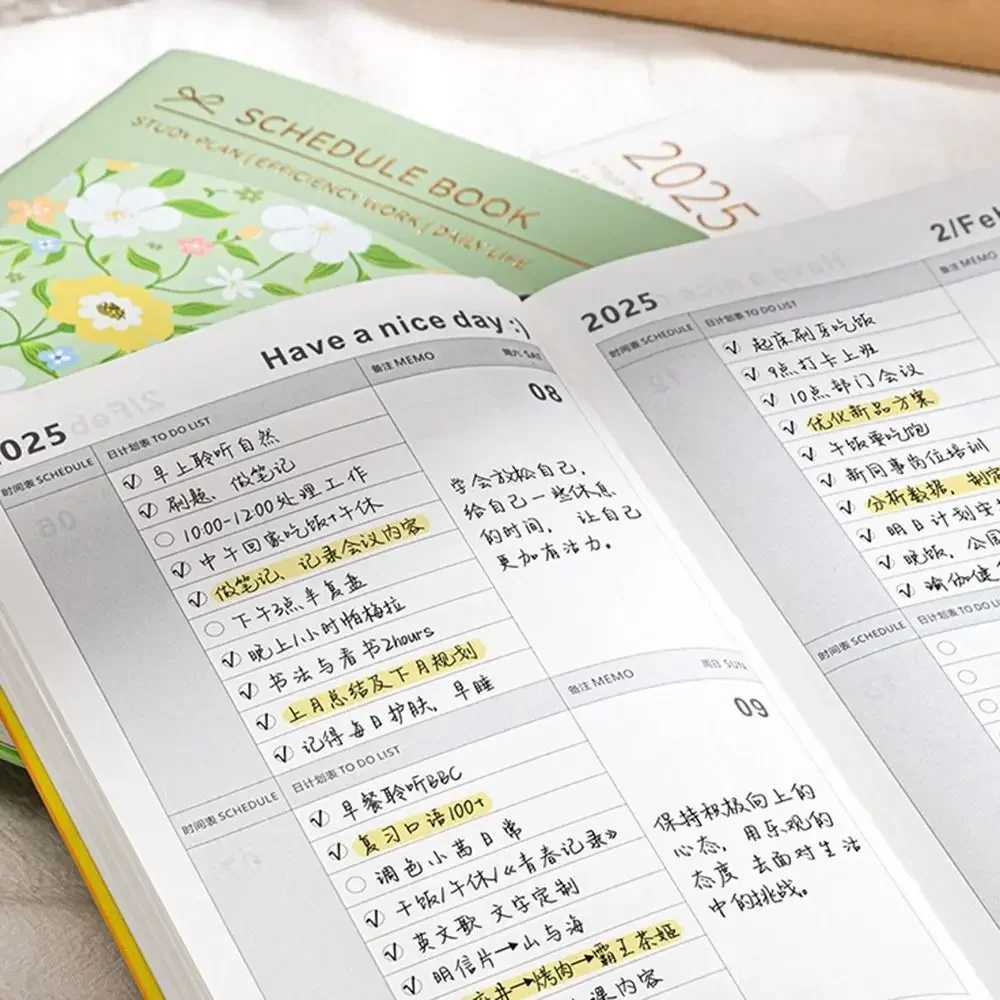 SCHEDULE BOOK
STUDY PLAN | EFFICIENCY WORK | DAILY LIFE
2025
Have a nice day :)
2025
时间表 SCHEDULE
日计划表 TO DO LIST
备注 MEMO
周六 SAT
08
早上聆听自然
刷题、做笔记
10:00-12:00处理工作
中午回家吃饭+午休
做笔记、记录会议内容
下午3点半复盘
晚上1小时帕梅拉
书法与看书2hours
上月总结及下月规划
记得每日护肤,早睡
学会放松自己,
给自己一些休息
的时间, 让自己
更加有活力。
时间表 SCHEDULE
日计划表 TO DO LIST
备注 MEMO
周日 SUN
09
早餐聆听BBC
复习口语100+
调色小苗日常
干饭/午休/《青春记录》
英文歌 文字定制
明信片→山与海
→烤肉→霸王茶姬
课内容
保持积极向上的
心态,用乐观的
态度 去面对生活
中的挑战。
2025
2/Feb
时间表 SCHEDULE
日计划表 TO DO LIST
备注 MEMO
起床刷牙吃饭
9点打卡上班
10点部门会议
优化新品方案
午饭要吃饱
新同事岗位培训
分析数据,制定
明日计划安
晚饭,公园
瑜伽健
时间表 SCHEDULE
日计划表 TO DO LIS